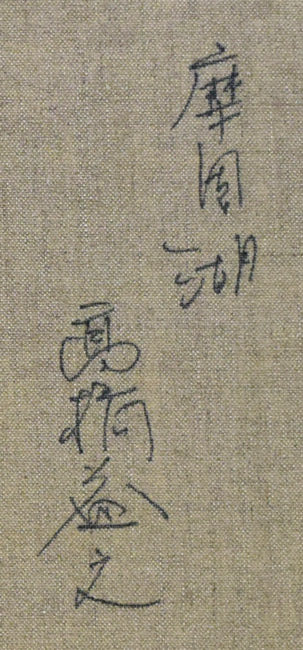 摩周湖
高橋益之